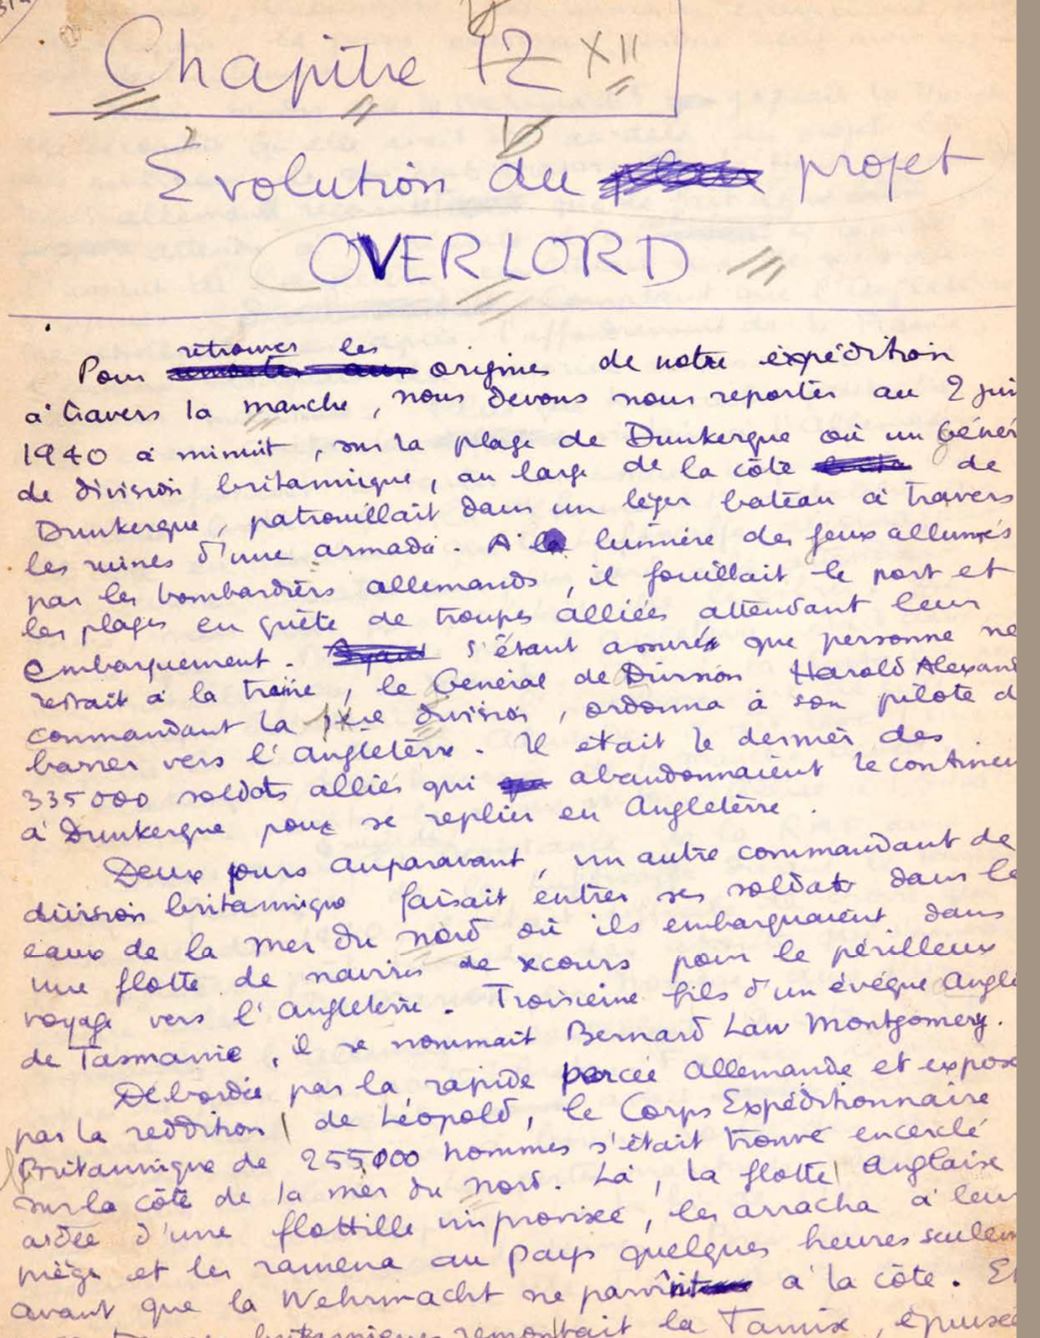 Chapitre 12 XII
Evolution du projet
OVERLORD
retrouver les
Pour origines de notre expédition
à travers la manche, nous devons nous reporter au 2 juin
1940 à minuit, sur la plage de Dunkerque où un Génér
de division britannique, au large de la côte de
Dunkerque, patrouillait dans un léger bateau à travers
les ruines d'une armada. A la lumière des feux allumés
par les bombardiers allemands, il fouillait le port et
les plages en quête de troupes alliées attendant leur
embarquement. S'étant assuré que personne ne
restait à la traîne, le Général de Division Harold Alexand
commandant la division, ordonna à son pilote d
barrer vers l'Angleterre. Il était le dernier des
335000 soldats alliés qui abandonnaient le continen
à Dunkerque pour se replier en Angleterre.
Deux jours auparavant, un autre commandant de
division britannique faisait entrer ses soldats dans le
eaux de la mer du nord où ils embarquaient dans
une flotte de navires de secours pour le périlleux
voyage vers l'Angleterre. Troisième fils d'un évêque Angli
de Tasmanie, il se nommait Bernard Law Montgomery.
Débordée par la rapide percée allemande et exposé
par la reddition de Léopold, le Corps Expéditionnaire
Britannique de 255,000 hommes s'était trouvé encerclé
sur la côte de la mer du nord. Là, la flotte Anglaise
aidée d'une flottille improvisée, les arracha à leur
piège et les ramena au pays quelques heures seulem
avant que la Wehrmacht ne parvînt à la côte. Et
britanniques remontait la Tamise, épuisée